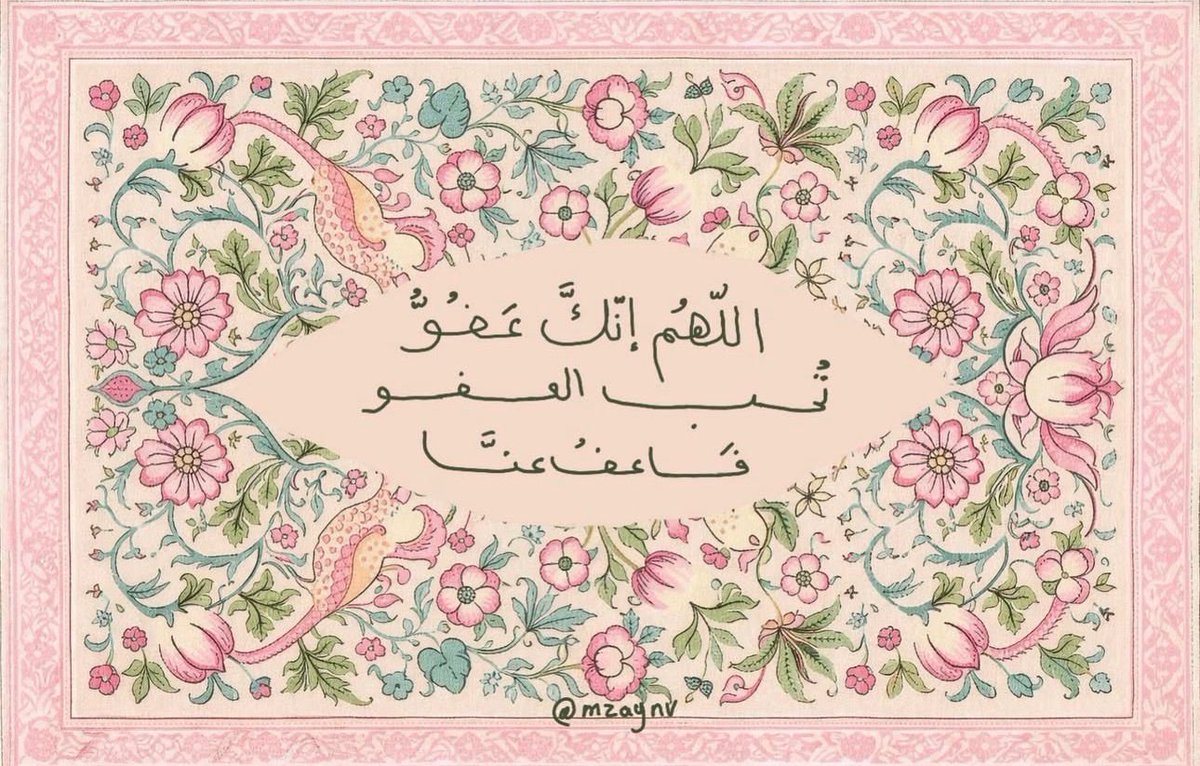 اللّهُم إنّكَّ عَفُوُّ
تُحب العفو
فَاعفُ عنَّا
@mzaynv